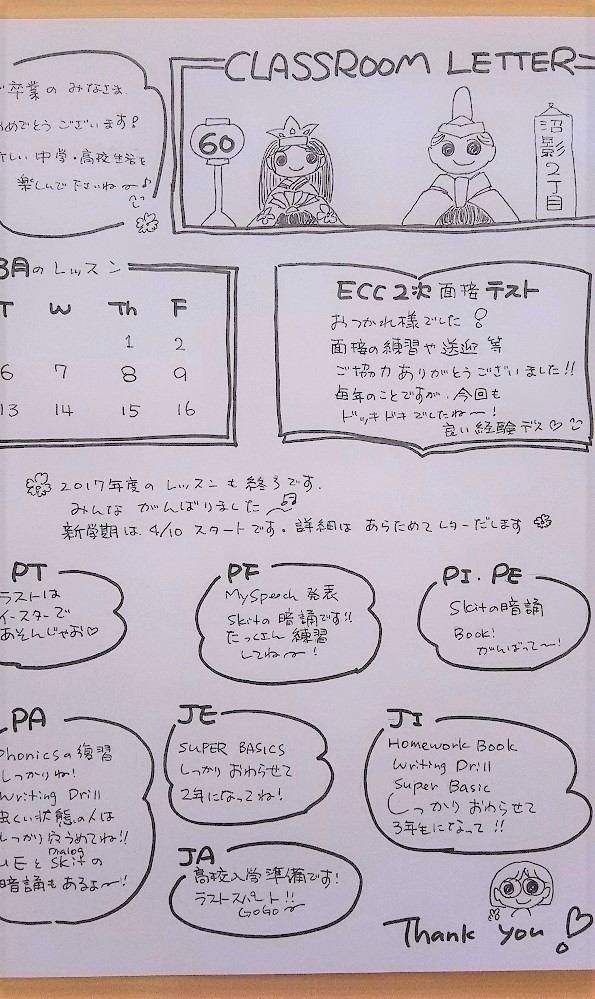 CLASSROOM LETTER
卒業のみなさま
おめでとうございます!
しい中学・高校生活を
楽しんでくださいね～♪
60
沼影2丁目
3月のレッスン
T W Th F
1 2
6 7 8 9
13 14 15 16
ECC 2次面接テスト
おつかれ様でした!
面接の練習や送迎等
ご協力ありがとうございました!!
毎年のことですが、今回も
ドッキドキでしたね～!
良い経験デス♡
2017年度のレッスンも終了です。
みんながんばりました
新学期は、4/10スタートです。詳細はあらためてレターだします
PT
ラストは
イースターで
あそんじゃお♡
PF
MySpeech 発表
Skitの暗誦です!!
たっくさん練習
してね～!
PI・PE
Skitの暗誦
Book!
がんばって～!
PA
Phonicsの練習
しっかりね!
Writing Drill
虫くい状態の人は
しっかり穴うめてね!!
Dialog
UEとSkitの
暗誦もあるよ～!!
JE
SUPER BASICS
しっかりおわらせて
2年になってね!
JI
Homework Book
Writing Drill
Super Basic
しっかりおわらせて
3年生になって!!
JA
高校入学準備です!
ラストスパート!!
GoGo～
Thank you!